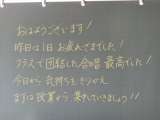 おはようございます!
昨日は1日お疲れさまでした!
クラスで団結した合唱最高でした!
今日から気持ちをきりかえ
まずは授業から集中していきましょう!!